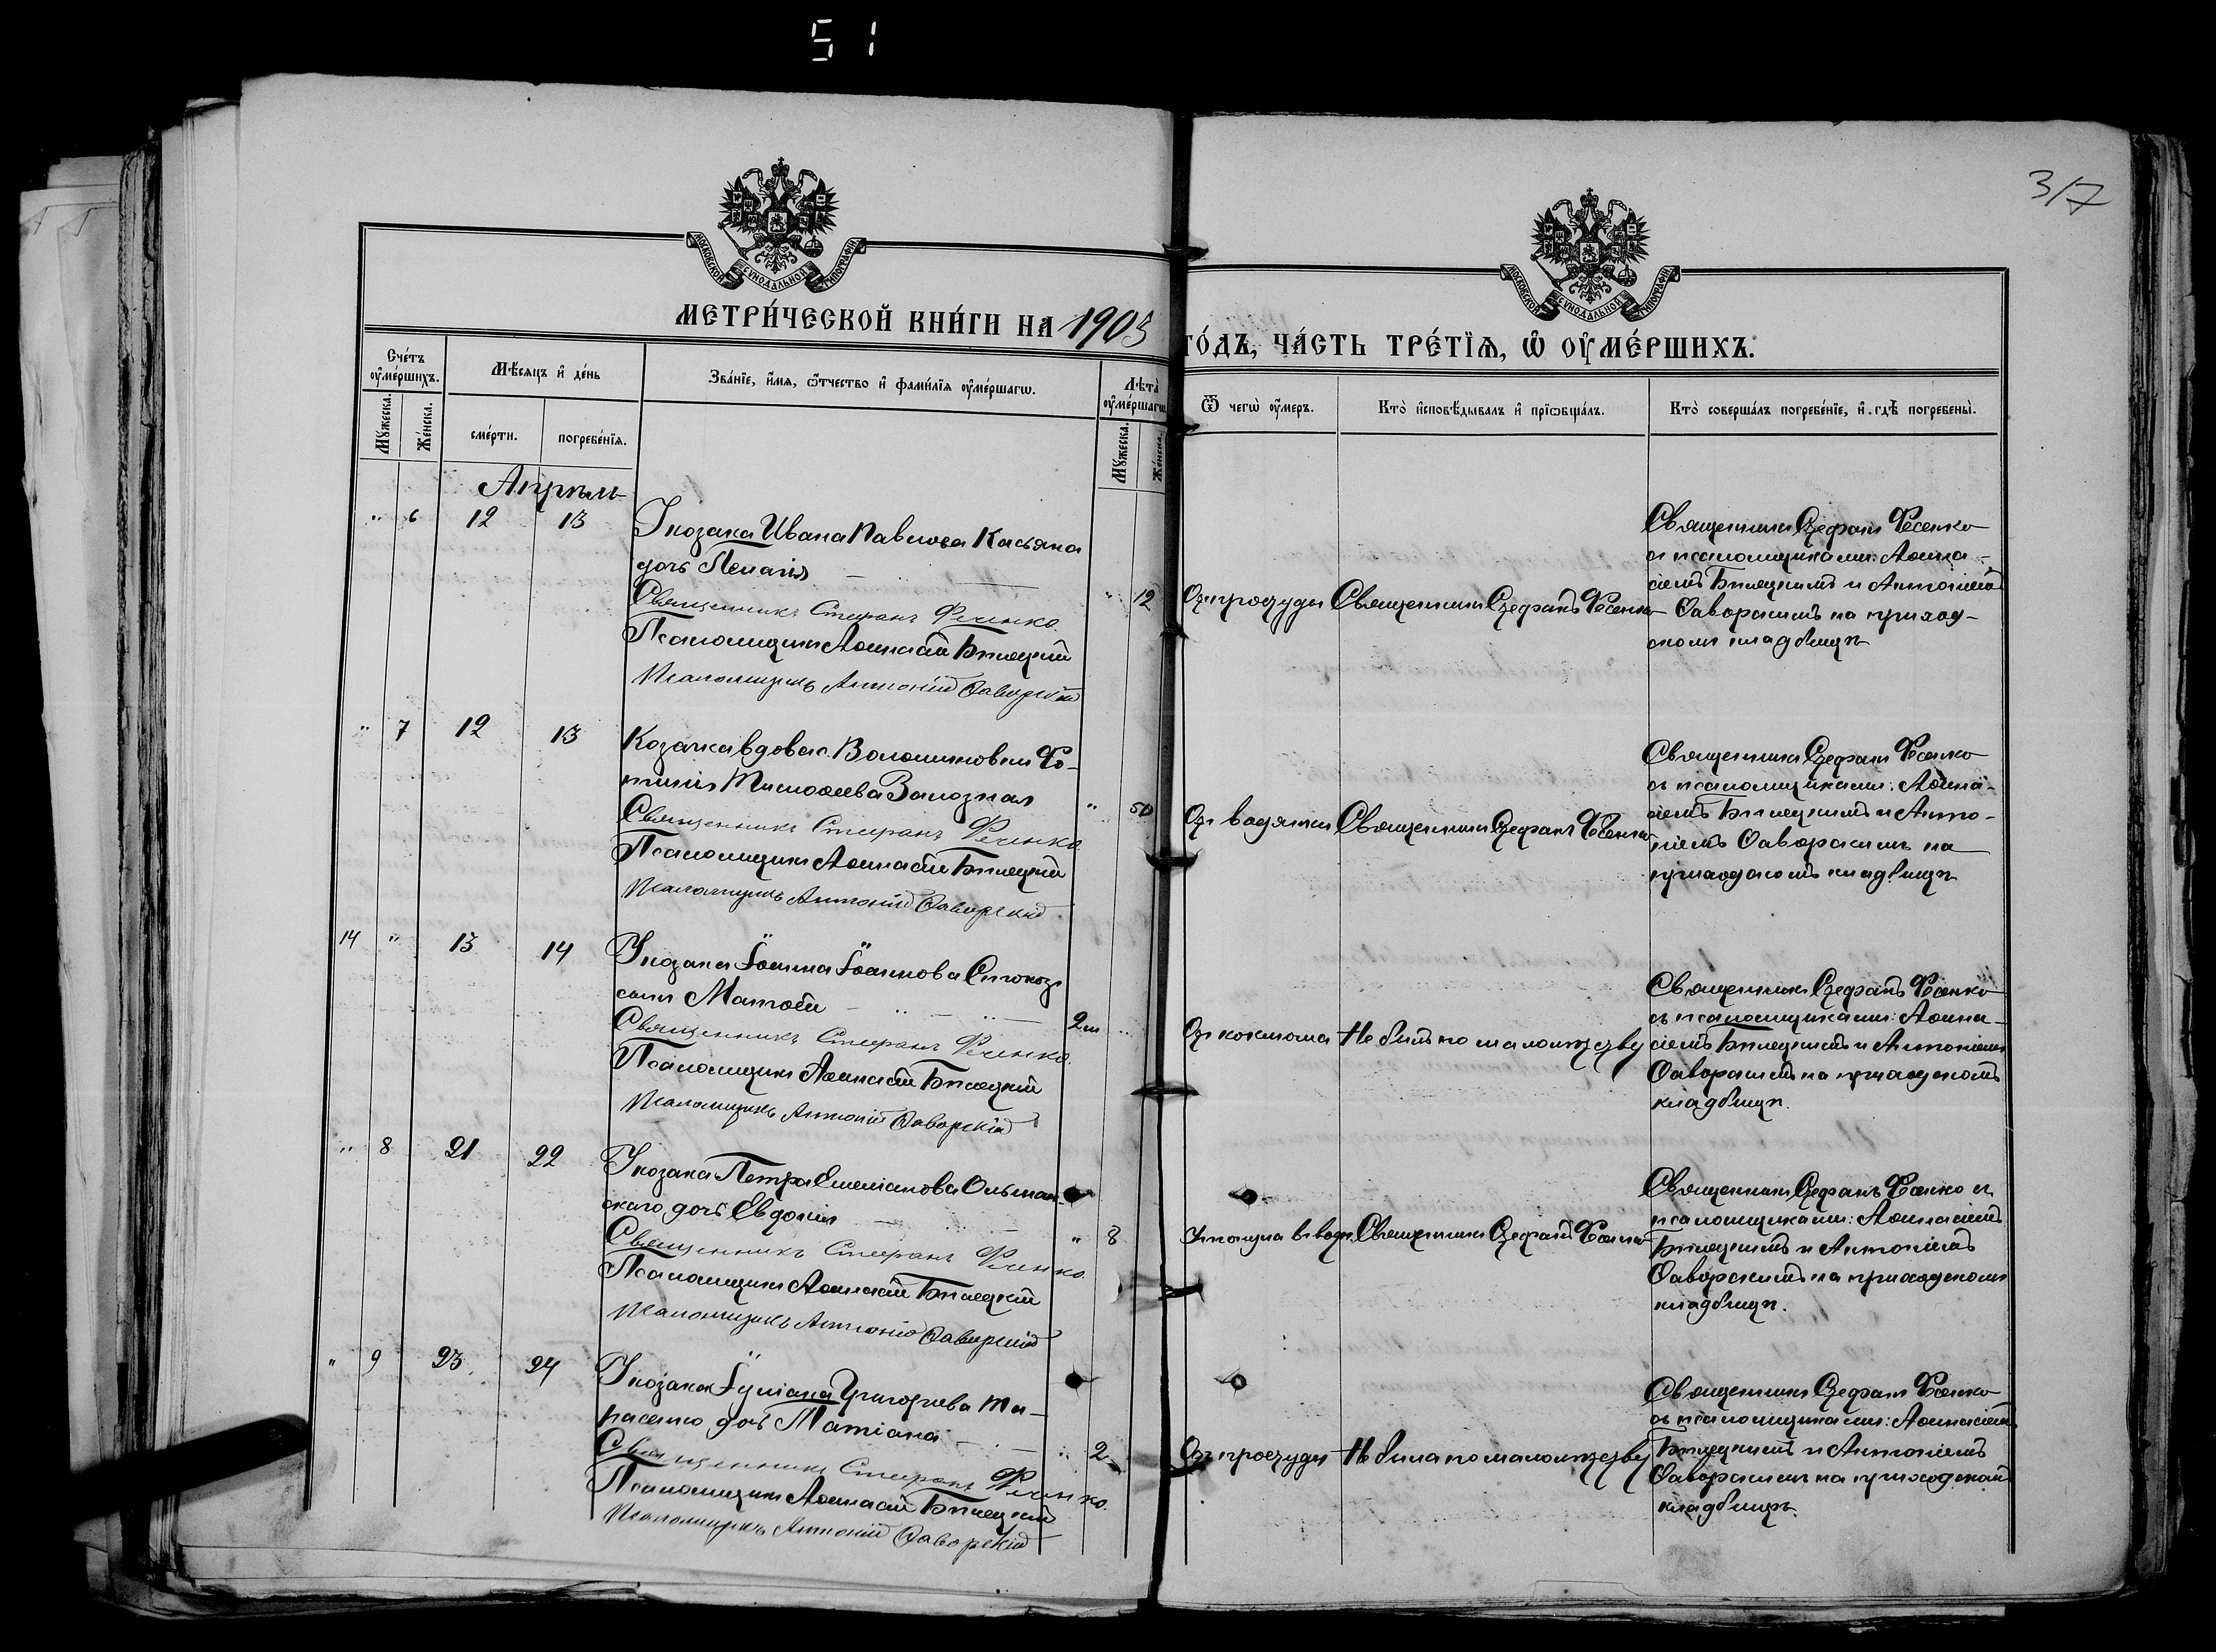 51
317
МОСКОВСКОЙ СУНОДАЛЬНОЙ ТИПОГРАФІИ
МОСКОВСКОЙ СУНОДАЛЬНОЙ ТИПОГРАФІИ
МЕТРИ́ЧЕСКОЙ КНИ́ГИ НА 1903
ГО́ДЪ, ЧА́СТЬ ТРЕ́ТЇѦ, Ѡ҆ ОУ҆МЕ́РШИХЪ.
Сче́тъ оу҆ме́ршихъ.
Мꙋ́жеска.
Же́нска.
Мѣ́сяцъ и҆ де́нь
сме́рти.
погребе́нїѧ.
Зва́нїе, и҆́мѧ, ѻ҆́тчество и҆ фами́лїѧ оу҆ме́ршагѡ.
Лѣ́та оу҆ме́ршагѡ.
Мꙋ́жеска.
Же́нска.
Ѿ чегѡ̀ оу҆́меръ.
Кто̀ и҆сповѣ́дывалъ и҆ прїѡбща́лъ.
Кто̀ соверша́лъ погребе́нїе, и҆ гдѣ̀ погребены̀.
Апрѣль
" 6 12 13
У козака Ивана Павлова Касьяна
дочь Пелагія
Священникъ Стефанъ Фесенко
Псаломщикъ Аѳанасій Бѣлецкій
Псаломщикъ Антоній Ѳаворскій
" 12
Отъ простуды
Священникъ Стефанъ Фесенко
Священникъ Стефанъ Фесенко
съ псаломщиками: Аѳана-
сіемъ Бѣлецкимъ и Антоніемъ
Ѳаворскимъ на приход-
скомъ кладбищѣ
" 7 12 13
Козачка вдова с. Волошиновки Фо-
тинія Тимоѳеева Залозная
Священникъ Стефанъ Фесенко
Псаломщикъ Аѳанасій Бѣлецкій
Псаломщикъ Антоній Ѳаворскій
" 50
Отъ водянки
Священникъ Стефанъ Фесенко
Священникъ Стефанъ Фесенко
съ псаломщиками: Аѳана-
сіемъ Бѣлецкимъ и Анто-
ніемъ Ѳаворскимъ на
приходскомъ кладбищѣ
14 " 13 14
У козака Іоанна Іоаннова
сынъ Матѳей
Священникъ Стефанъ Фесенко
Псаломщикъ Аѳанасій Бѣлецкій
Псаломщикъ Антоній Ѳаворскій
2 м "
Отъ коклюша
Не былъ по малолѣтству
Священникъ Стефанъ Фесенко
съ псаломщиками: Аѳана-
сіемъ Бѣлецкимъ и Антоніемъ
Ѳаворскимъ на приходскомъ
кладбищѣ.
" 8 21 22
У козака Петра Емеліанова Ольшан-
скаго дочь Евдокія
Священникъ Стефанъ Фесенко
Псаломщикъ Аѳанасій Бѣлецкій
Псаломщикъ Антоній Ѳаворскій
" 8
Утонула въ водѣ
Священникъ Стефанъ Фесенко
Священникъ Стефанъ Фесенко съ
псаломщиками: Аѳанасіемъ
Бѣлецкимъ и Антоніемъ
Ѳаворскимъ на приходскомъ
кладбищѣ.
" 9 23 24
У козака Іуліана Григорьева Та-
расенко дочь Татіана
Священникъ Стефанъ Фесенко
Псаломщикъ Аѳанасій Бѣлецкій
Псаломщикъ Антоній Ѳаворскій
" 2
Отъ простуды
Не была по малолѣтству
Священникъ Стефанъ Фесенко
съ псаломщиками: Аѳанасіемъ
Бѣлецкимъ и Антоніемъ
Ѳаворскимъ на приходскомъ
кладбищѣ.